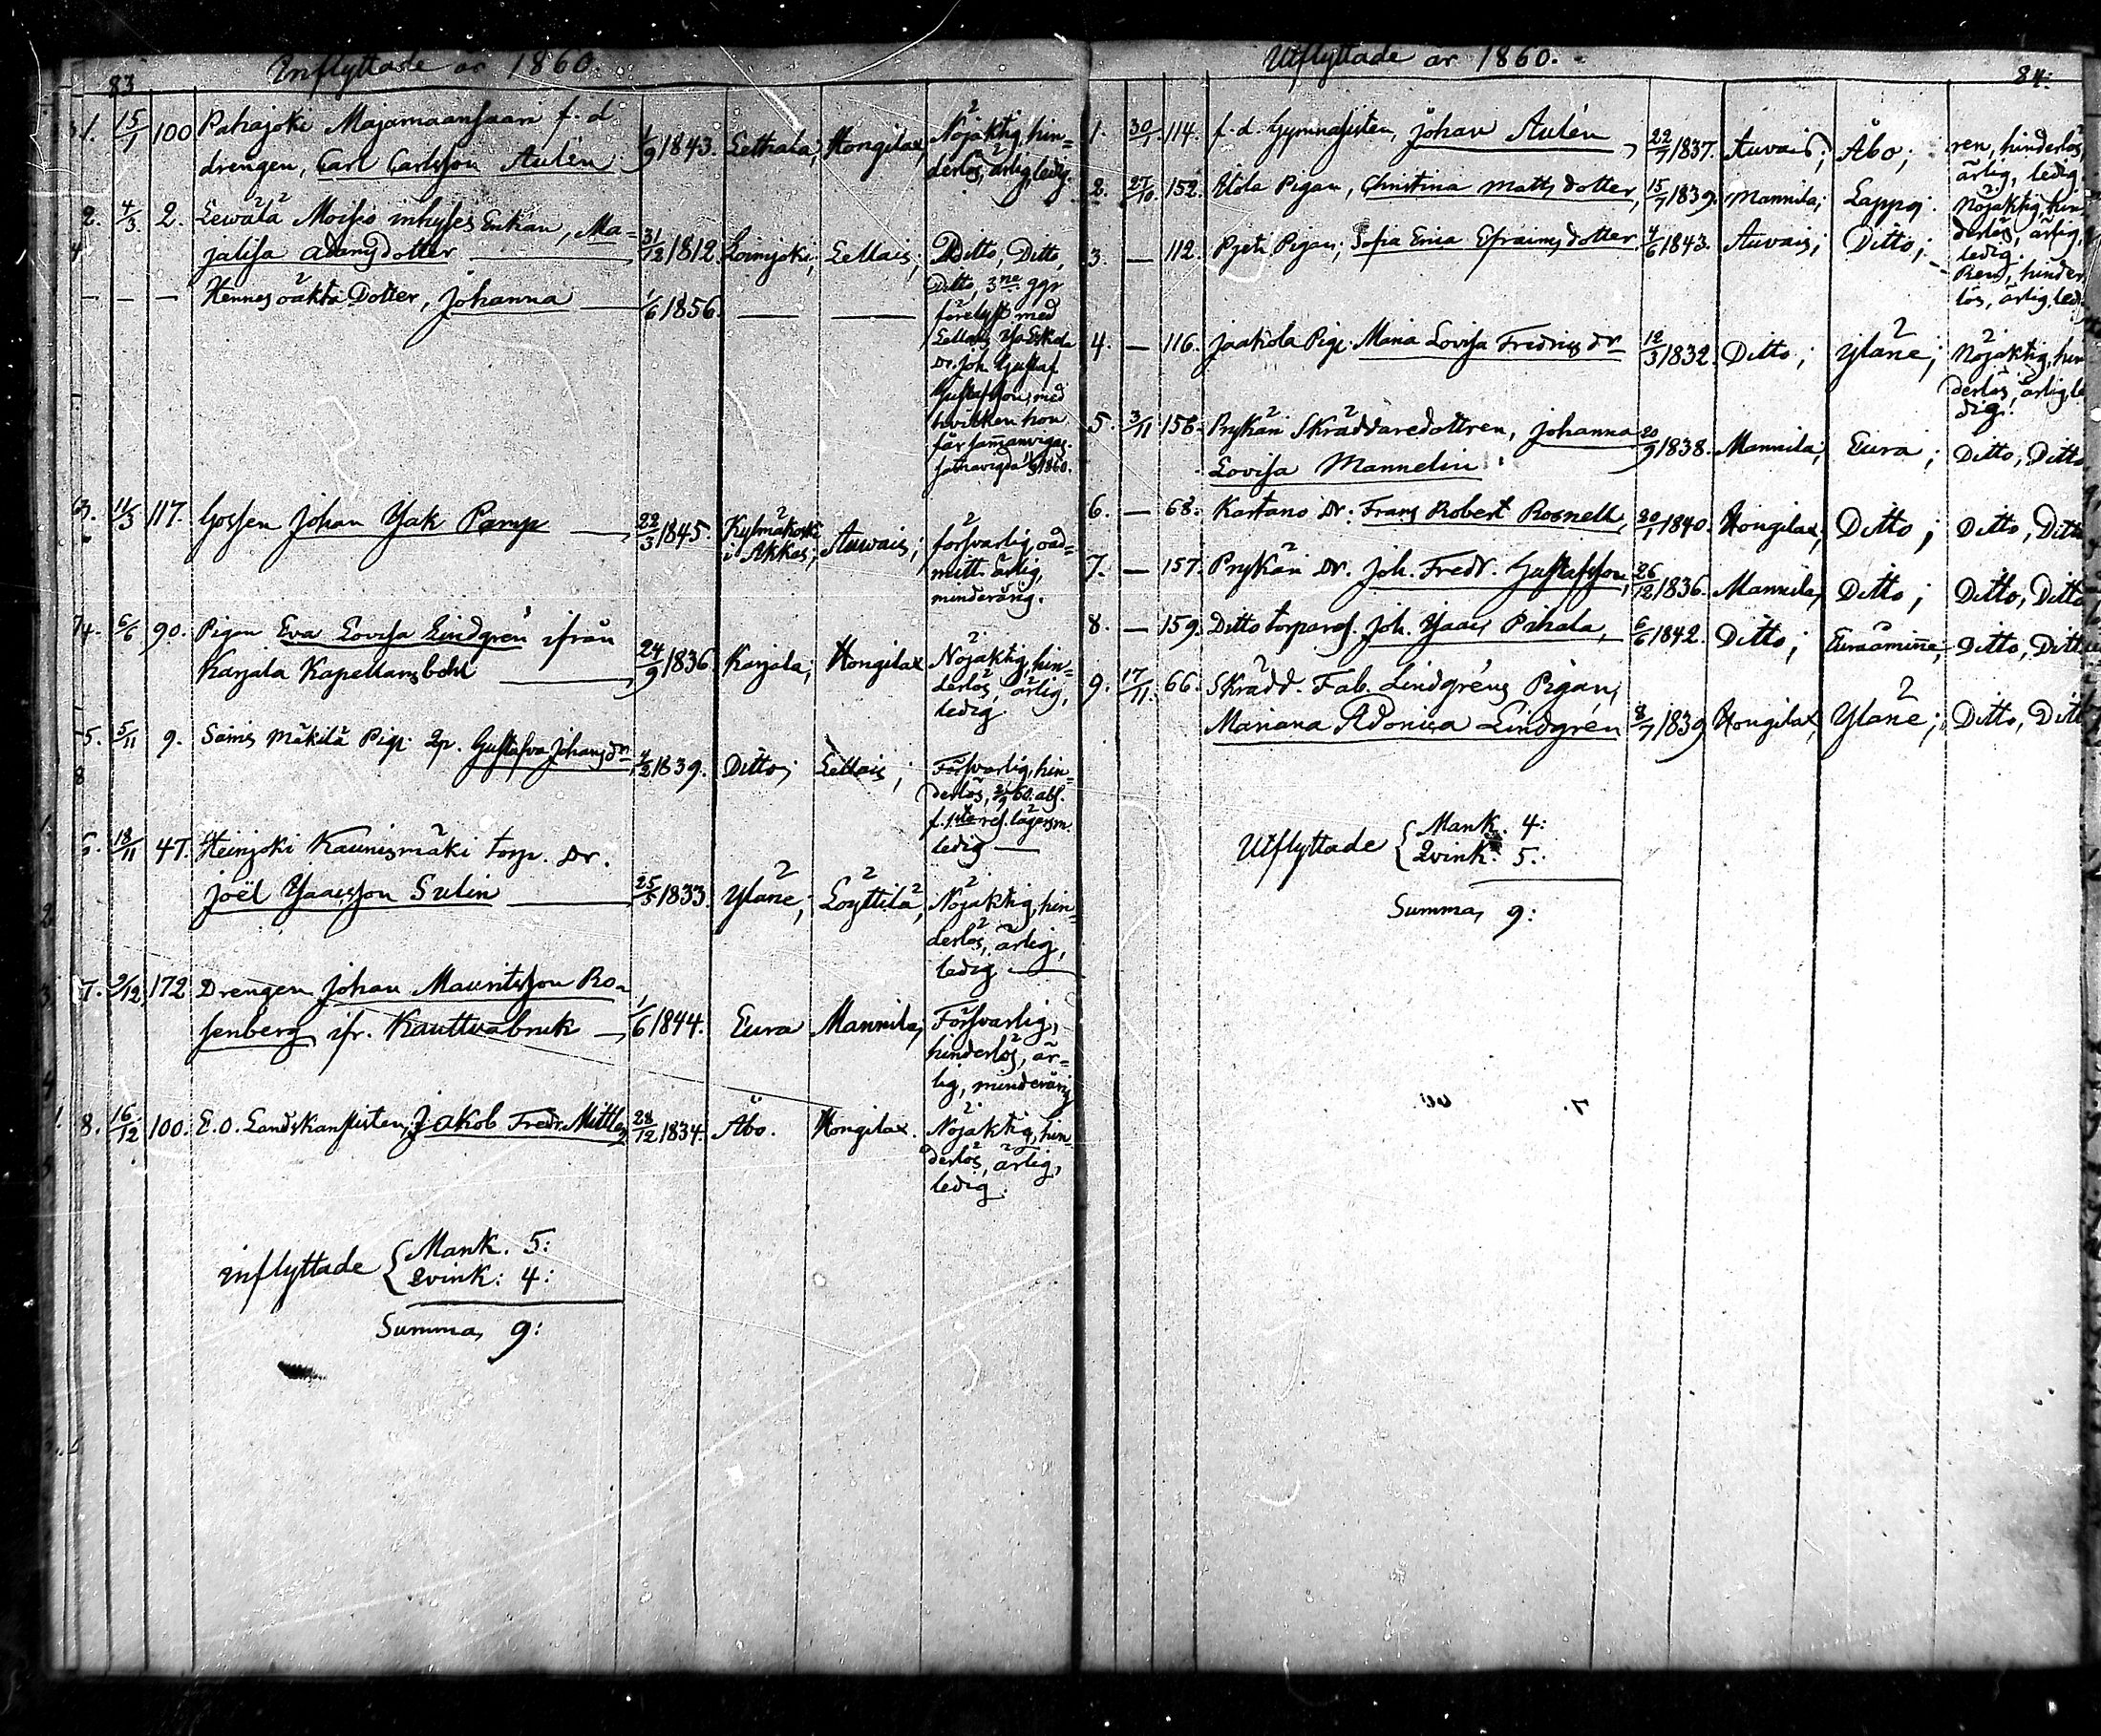 83
Inflyttade år 1860
1. 15/1 100 Pahajoki Majamaansaari f. d
drengen, Carl Carlsson Aulén 1/9 1843. Lethala, Hongilax, Nöjaktig, hin=
derlös, ärlig, ledig.
2. 4/3. 2. Lewälä Moisio inhyses Enkan, Ma=
jalisa Adamsdotter 31/12 1812. Loimjoki; Lellais; Ditto, Ditto,
— — — Hennes oäkta Dotter, Johanna 1/6 1856. — — Ditto, 3ne ggr
förelyst med
Lellais Yli Eskola
Dr. Joh. Gustaf
Gustafsson, med
hvilken hon
får sammanvigas.
3. 11/3 117. Gossen Johan Isak Pamp — 22/3 1845. Kylmäkoski
i Akkas; Auvais; försvarlig, oad=
mitt. ärlig,
minderårig.
4. 6/6 90. Pigan Eva Lovisa Lindgrén ifrån
Karjala Kapellansbohl 24/9 1836 Karjala; Hongilax Nöjaktig, hin=
derlös, ärlig,
ledig.
5. 5/11 9. Säinis Mäkilä Pig. Gustafva Johansdr 4/2 1839. Ditto; Lellais; Försvarlig, hin=
derlös,
ledig —
6. 18/11 47. Heinjoki Kaunismäki torp. Dr.
Joël Isaacsson Sulin 25/5 1833 Yläne; Löyttilä, Nöjaktig, hin=
derlös, ärlig,
ledig.
7. 9/12 172 Drengen Johan Mauritsson Ro=
senberg ifr. Kauttuabruk — 1/6 1844. Eura Mannila, Försvarlig,
hinderlös, är=
lig, minderårig
8. 16/12 100. E. O. Landskanslisten, Jakob Fredr. Mittler 28/12 1834. Åbo. Hongilax. Nöjaktig, hin=
derlös, ärlig,
ledig.
Inflyttade { Mank. 5:
Qvink: 4:
Summa, 9:
Utflyttade år 1860.
84:
1. 30/1 114. f. d. Gymnasisten, Johan Aulén, 22/7 1837. Auvais; Åbo; ren, hinderlös,
ärlig, ledig.
2. 27/10 152. Utola Pigan, Christina Matts dotter, 15/7 1839. Mannila; Lappo; Nöjaktig, hin=
derlös, ärlig,
ledig.
3. — 112. Pigan, Sofia Erica Efraims dotter 4/6 1843. Auvais; Ditto; Ren, hinder
lös, ärlig, ledi
4. — 116. Jaakola Pig. Maria Lovisa Fredrics dr 12/3 1832. Ditto; Yläne; Nöjaktig, hin
derlös, ärlig, le
dig.
5. 3/11 156. Prykän Skräddaredottren, Johanna
Lovisa Mannelin 20/9 1838. Mannila; Eura; Ditto, Ditto
6. — 68. Kartano Dr. Frans Robert Rosnell 20/1 1840. Hongilax; Ditto; Ditto, Ditto
7. — 157. Prykän Dr. Joh. Fredr. Gustafsson, 26/12 1836. Mannila; Ditto; Ditto, Ditto
8. — 159. Ditto torpares. Joh. Isaac Pihala, 6/6 1842. Ditto; Euraåminne; Ditto, Ditto
9. 17/11. 66. Skrädd. Fab. Lindgréns Pigan,
Mariana Adonica Lindgrén 8/7 1839 Hongilax; Yläne; Ditto, Ditt
Utflyttade { Mank. 4:
Qvink. 5:
Summa, 9: